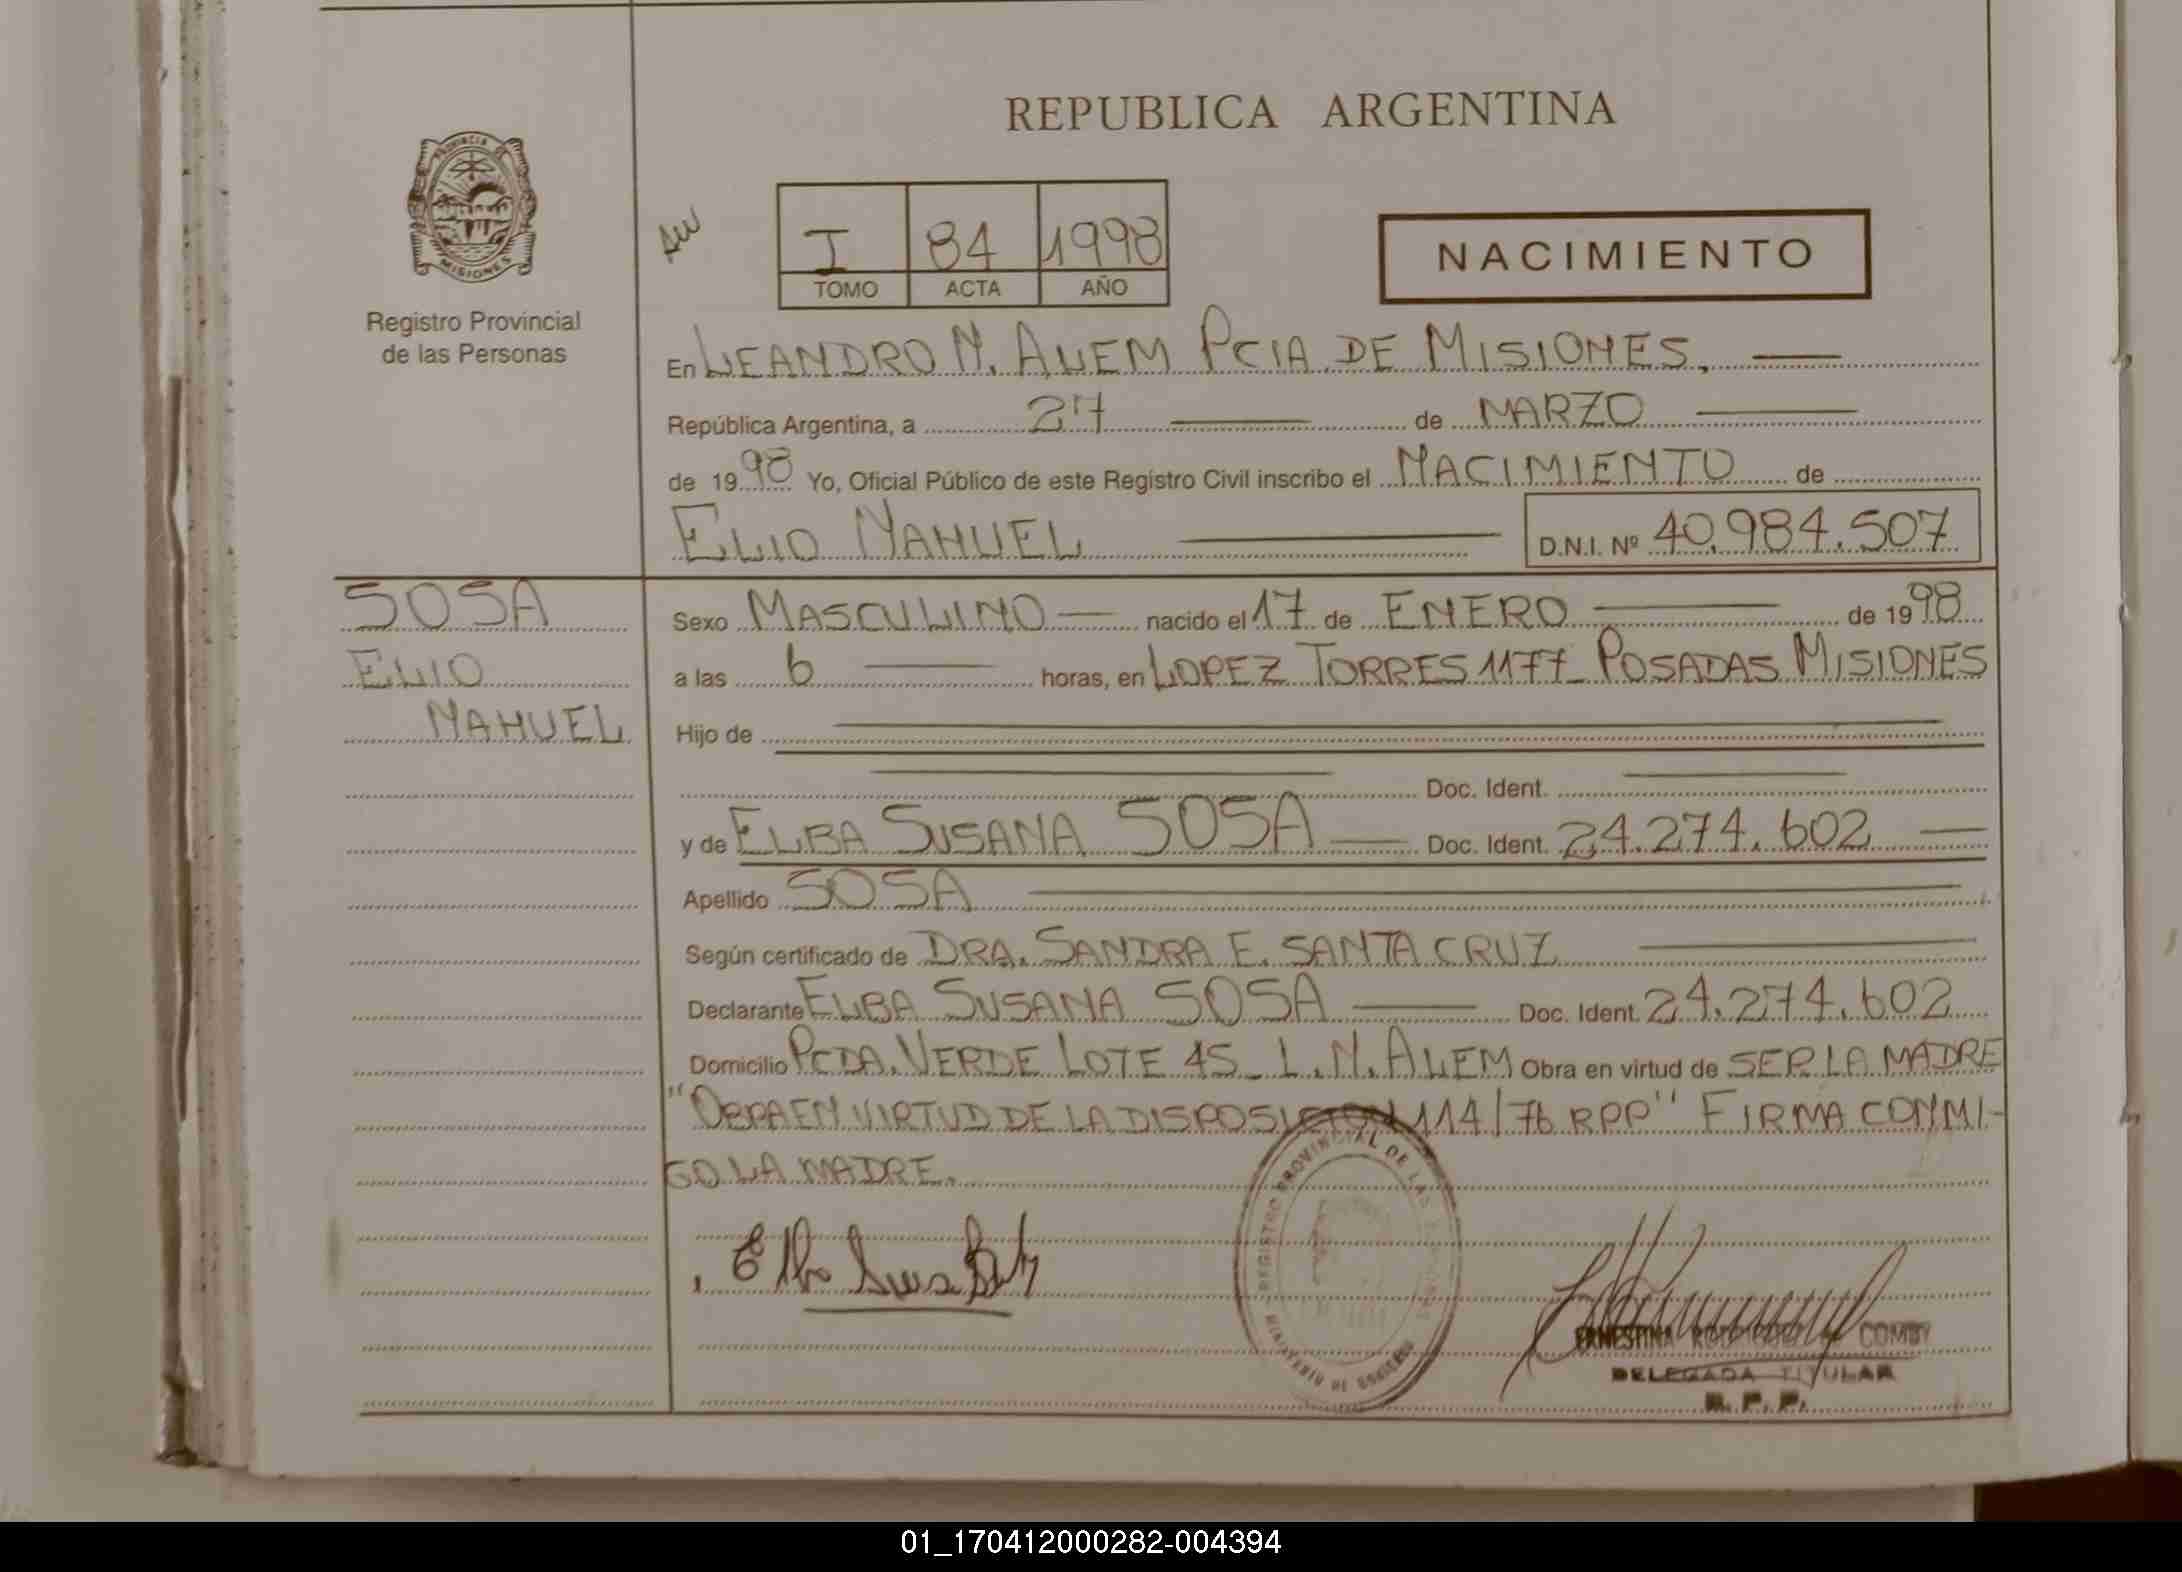 REPUBLICA ARGENTINA
PROVINCIA DE
MISIONES
Registro Provincial
de las Personas
I 84 1998
TOMO ACTA AÑO
NACIMIENTO
En LEANDRO N. ALEM PCIA DE MISIONES,
República Argentina, a 27 de MARZO
de 1998 Yo, Oficial Público de este Registro Civil inscribo el NACIMIENTO de
ELIO NAHUEL D.N.I. Nº 40.984.507
SOSA
ELIO
NAHUEL
Sexo MASCULINO nacido el 17 de ENERO de 1998
a las 6 horas, en LOPEZ TORRES 1177_ POSADAS MISIONES
Hijo de
Doc. Ident.
y de ELBA SUSANA SOSA Doc. Ident. 24.274.602
Apellido SOSA
Según certificado de DRA. SANDRA E. SANTA CRUZ
Declarante ELBA SUSANA SOSA Doc. Ident. 24.274.602
Domicilio PCDA. VERDE LOTE 45_ L.N. ALEM Obra en virtud de SER LA MADRE
"OBRA EN VIRTUD DE LA DISPOSICION 114/76 RPP" FIRMA CONMI-
GO LA MADRE.
REGISTRO PROVINCIAL DE LAS
MINISTERIO DE GOBIERNO
Elba
ERNESTINA COMBY
DELEGADA TITULAR
R. P. P.
01_170412000282-004394